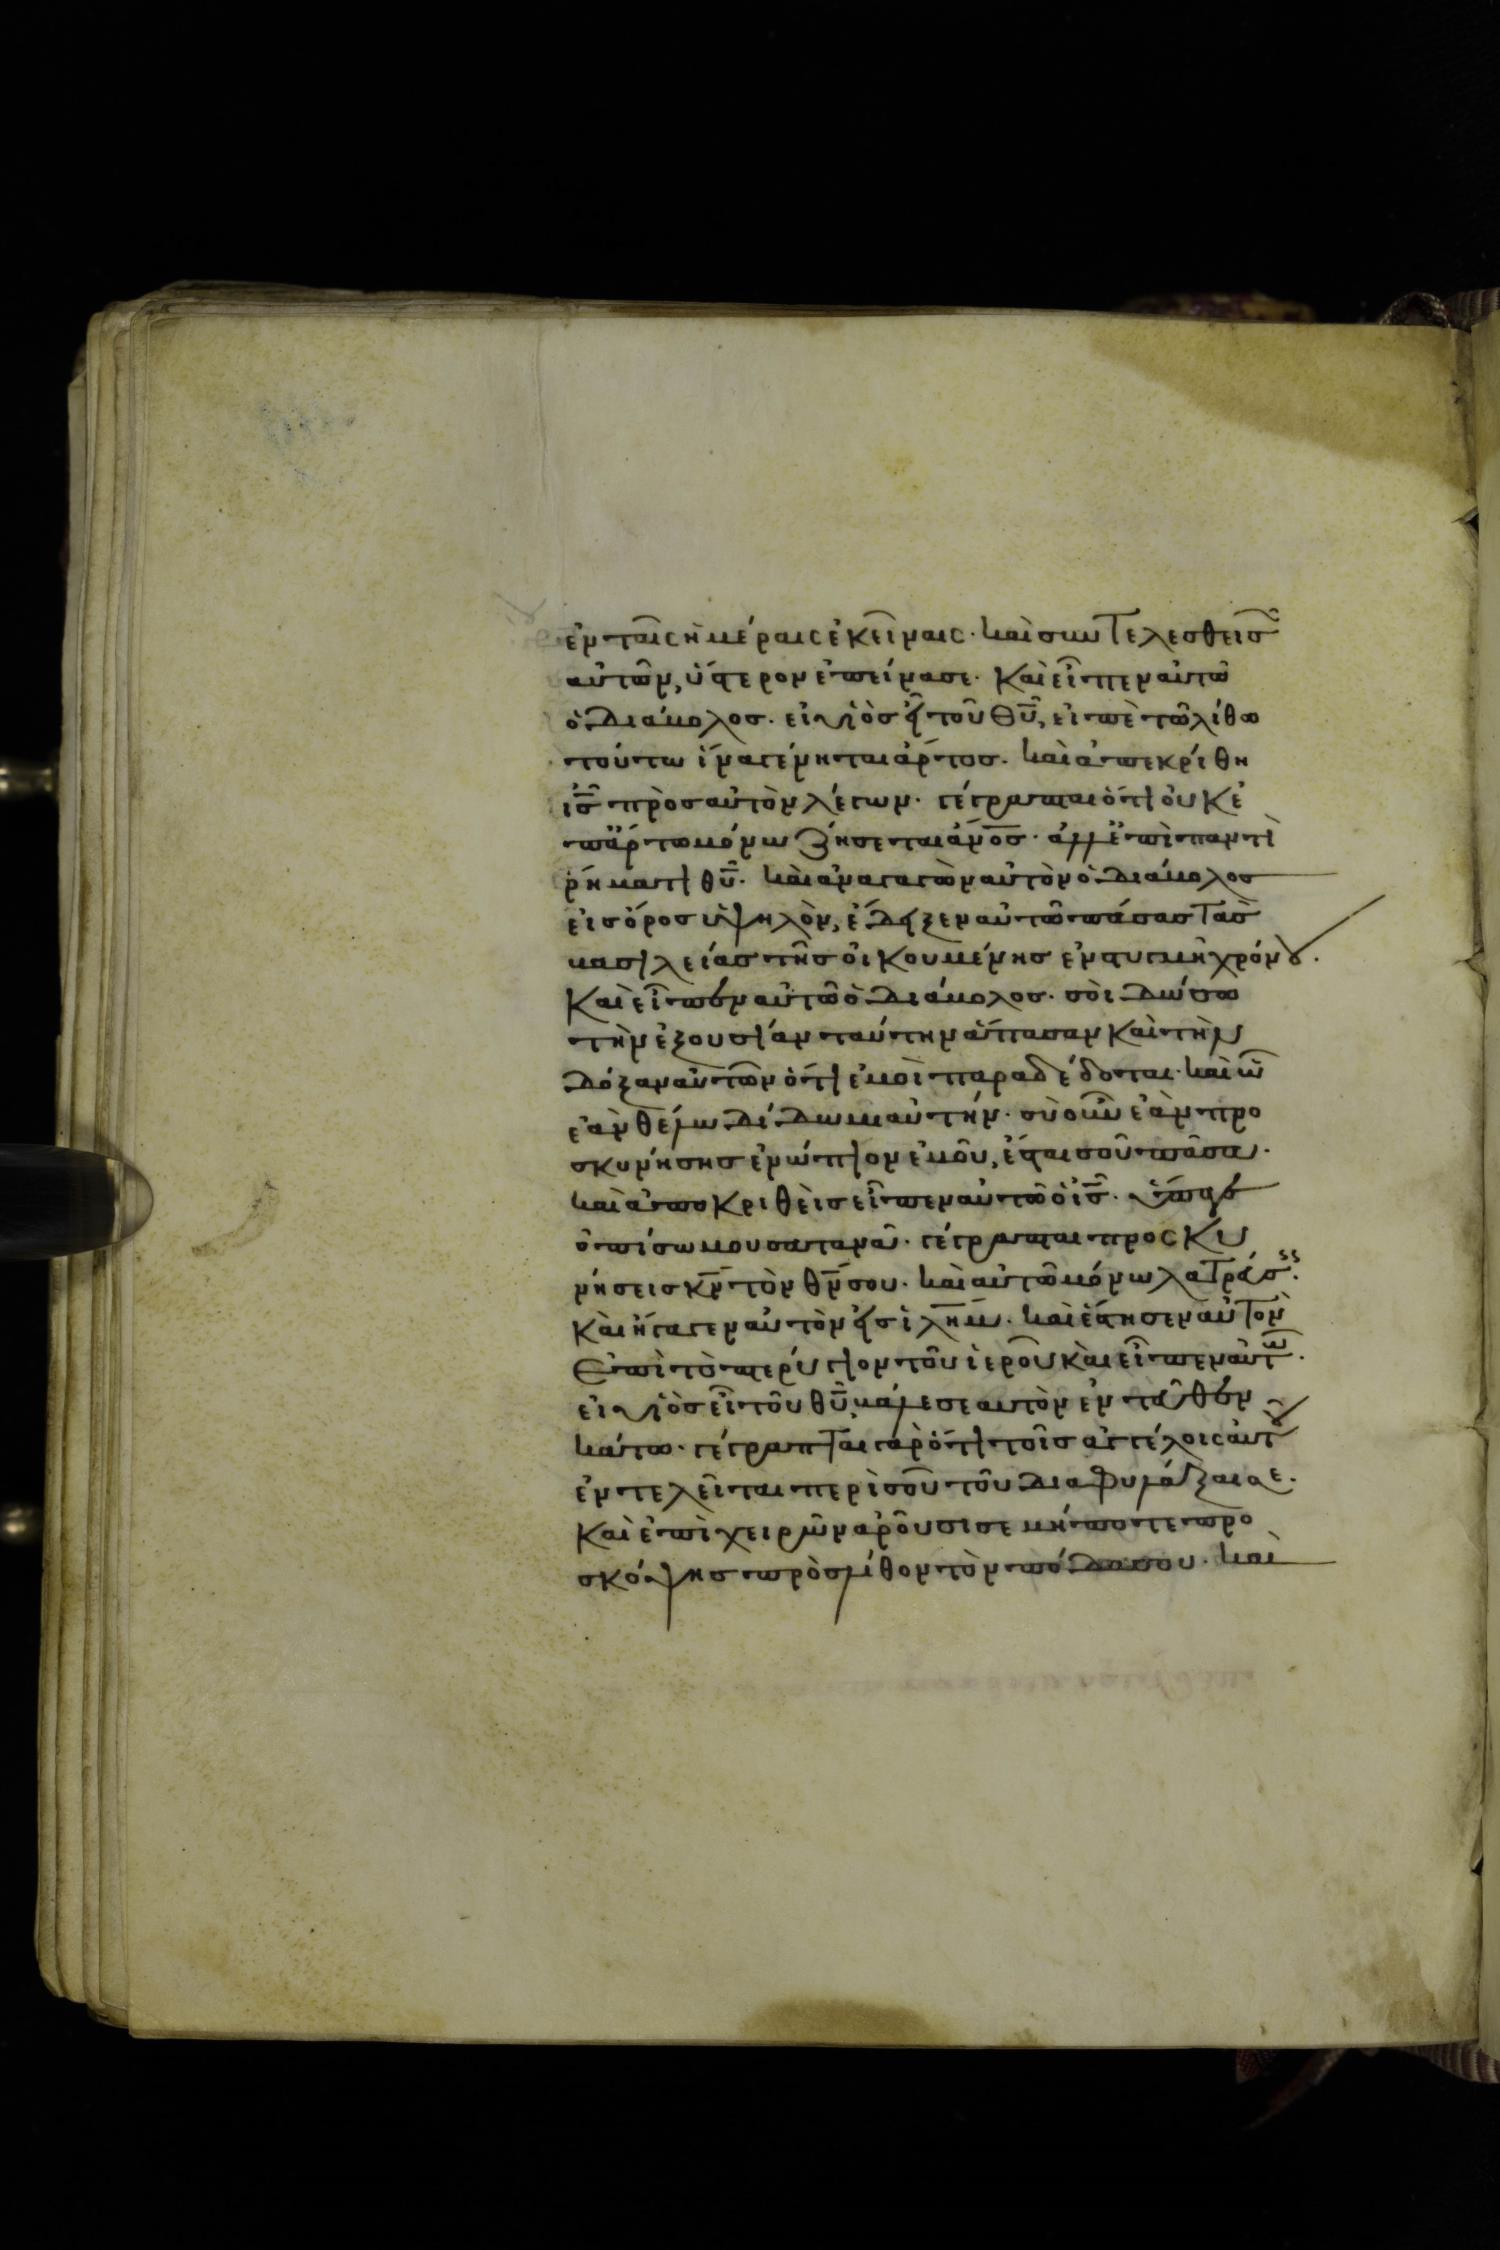 ἐν ταῖς ἡμέραις ἐκείναις· καὶ συντελεσθεισ῀
αὐτῶν, ὕστερον ἐπείνασε· Καὶ εἶπεν αὐτῶ
ὁ διάβολοσ· εἰ υἱὸσ εἶ τοῦ θῦ, εἰπὲ τῶ λίθω
τούτω ἵνα γένηται ἄρτοσ· καὶ ἀπεκρίθη
ἰσ̅ πρὸσ αὐτὸν λέγων· γέγραπται ὅτι οὐκ ἐ
π ἄρτω μόνω ζήσεται ἄνο̅σ· ἀλλ ἐπὶ παντὶ
ῥήματι θῦ· καὶ ἀναγαγὼν αὐτὸν ὁ διάβολοσ
εἰσ ὄροσ ὑψηλὸν, ἔδειξεν αὐτῶ πάσασ τὰσ
βασιλείασ τῆσ οἰκουμένησ ἐν στιγμῆ χρόνου·
Καὶ εἶπεν αὐτῶ ὁ διάβολοσ· σοὶ δώσω
τὴν ἐξουσίαν ταύτην ἅπασαν καὶ τὴν
δόξαν αὐτῶν ὅτι ἐμοὶ παραδέδοται· καὶ ὧ
ἐὰν θέλω δίδωμι αὐτήν· σὺ οὖν ἐὰν προ
σκυνήσησ ἐνώπιον ἐμοῦ, ἔσται σοῦ πᾶσα·
καὶ ἀποκριθεὶσ εἶπεν αὐτῶ ὁ ἰσ̅· ὕπαγε
ὀπίσω μου σατανᾶ· γέγραπται προσκυ
νήσεισ κν̅ τὸν θν̅ σου· καὶ αὐτῶ μόνω λατρεύσ·
Καὶ ἤγαγεν αὐτὸν εἰσ ἱλη̅μ· καὶ ἔστησεν αὐτὸν
ἐπὶ τὸ πτερύγιον τοῦ ἱεροῦ καὶ εἶπεν αὐτῶ·
εἰ υἱὸσ εἶ τοῦ θῦ, βάλε σεαυτὸν ἐντεῦθεν
κάτω· γέγραπται γὰρ ὅτι τοῖσ ἀγγέλοις αὐτοῦ
ἐντελεῖται περὶ σοῦ τοῦ διαφυλάξαι σε·
Καὶ ἐπὶ χειρῶν ἀροῦσι σε μήποτε προ
σκόψησ πρὸσ λίθον τὸν πόδα σου· καὶ